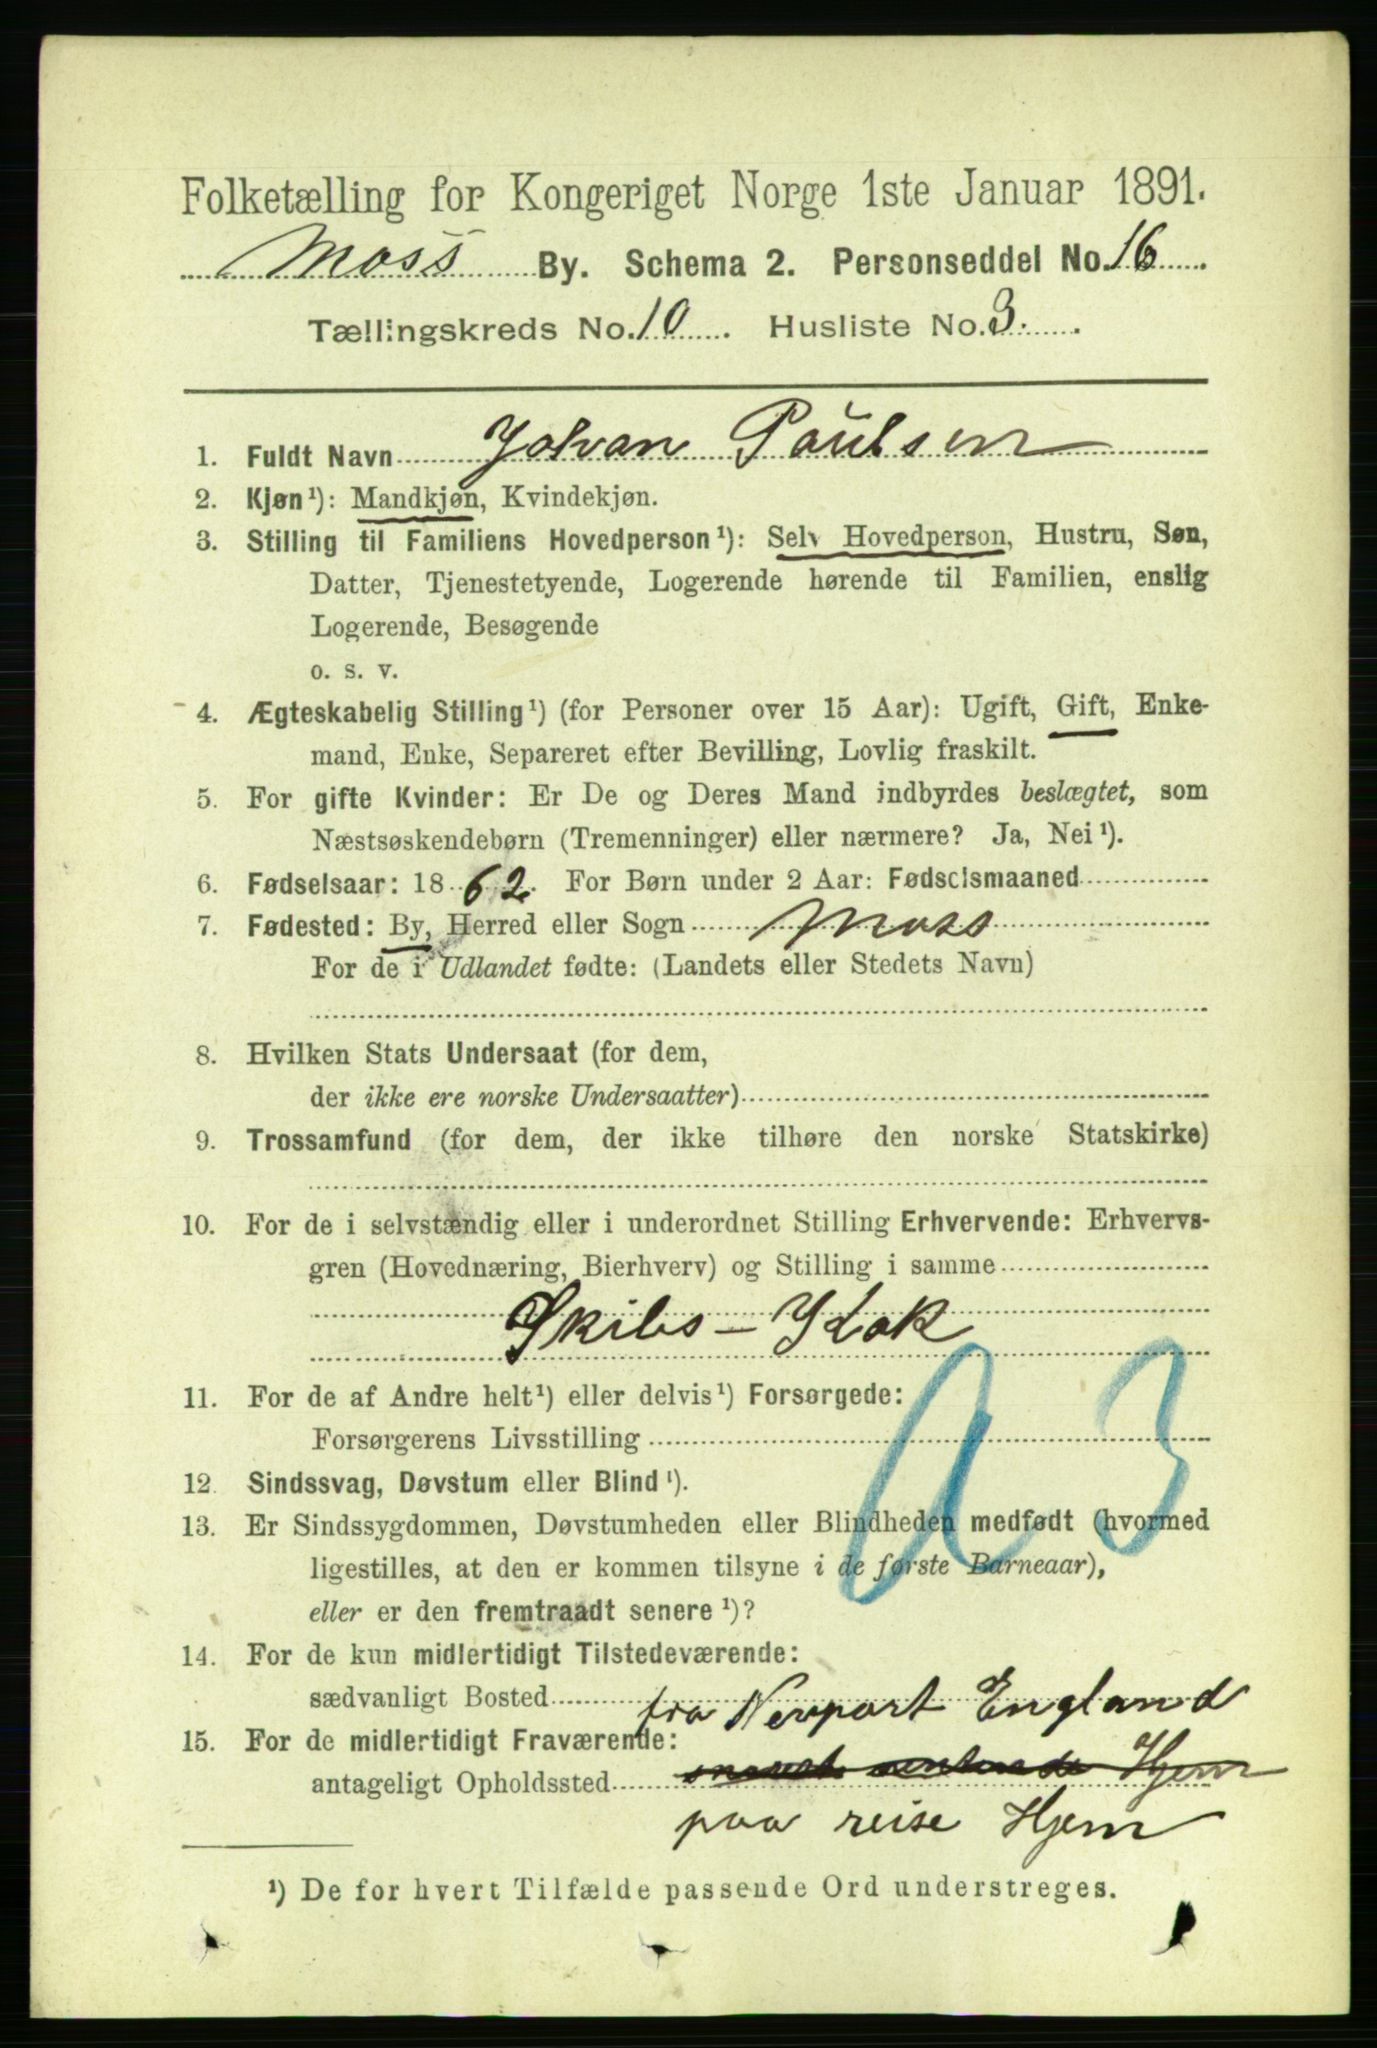 Folketælling for Kongeriget Norge 1ste Januar 1891.
Moss By. Schema 2. Personseddel No. 16
Tællingskreds No. 10. Husliste No. 3.
1. Fuldt Navn Johan Paulsen
2. Kjøn¹): Mandkjøn, Kvindekjøn.
3. Stilling til Familiens Hovedperson¹): Selv Hovedperson, Hustru, Søn,
Datter, Tjenestetyende, Logerende hørende til Familien, enslig
Logerende, Besøgende
o. s. v.
4. Ægteskabelig Stilling¹) (for Personer over 15 Aar): Ugift, Gift, Enke-
mand, Enke, Separeret efter Bevilling, Lovlig fraskilt.
5. For gifte Kvinder: Er De og Deres Mand indbyrdes beslægtet, som
Næstsøskendebørn (Tremenninger) eller nærmere? Ja, Nei¹).
6. Fødselsaar: 1862. For Børn under 2 Aar: Fødselsmaaned
7. Fødested: By, Herred eller Sogn Moss
For de i Udlandet fødte: (Landets eller Stedets Navn)
8. Hvilken Stats Undersaat (for dem,
der ikke ere norske Undersaatter)
9. Trossamfund (for dem, der ikke tilhøre den norske Statskirke)
10. For de i selvstændig eller i underordnet Stilling Erhvervende: Erhvervs-
gren (Hovednæring, Bierhverv) og Stilling i samme
Skibs-Kok
11. For de af Andre helt¹) eller delvis¹) Forsørgede:
Forsørgerens Livsstilling
12. Sindssvag, Døvstum eller Blind¹).
13. Er Sindssygdommen, Døvstumheden eller Blindheden medfødt (hvormed
ligestilles, at den er kommen tilsyne i de første Barneaar),
eller er den fremtraadt senere¹)?
14. For de kun midlertidigt Tilstedeværende:
sædvanligt Bosted fra Newport England
15. For de midlertidigt Fraværende:
antageligt Opholdssted Hjem
paa reise Hjem
¹) De for hvert Tilfælde passende Ord understreges.